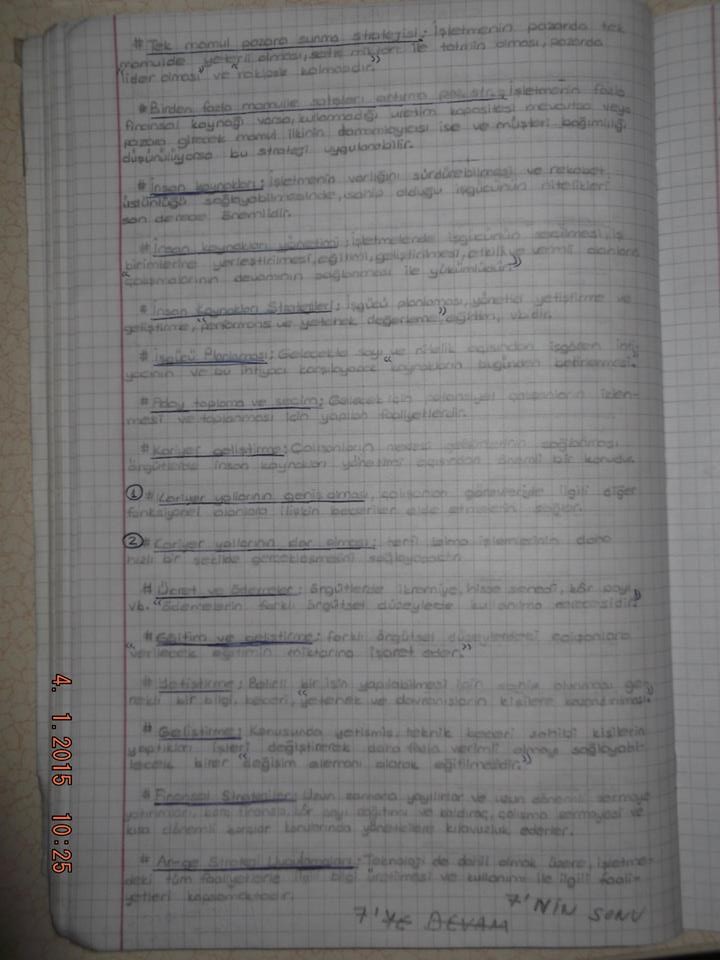 # Tek mamul pazara sunma stratejisi: İşletmenin pazarda tek
mamulde yeterli olması, satış miktarı ile tatmin olması, pazarda
lider olması" ve rakipsiz kalmasıdır."
# Birden fazla mamulle satışları artırma paz. str.: İşletmenin fazla
finansal kaynağı varsa, kullanmadığı üretim kapasitesi mevcutsa veya
pazara girecek mamul ilkinin tamamlayıcısı ise ve müşteri bağımlılığı
düşünülüyorsa bu strateji uygulanabilir.
# İnsan kaynakları: İşletmenin varlığını sürdürebilmesi ve rekabet
üstünlüğü sağlayabilmesinde, sahip olduğu işgücünün nitelikleri
son derece önemlidir.
# İnsan kaynakları yönetimi: işletmelerde işgücünün seçilmesi, iş
"birimlerine yerleştirilmesi, eğitimi, geliştirilmesi, etkili ve verimli olarak
çalışmalarının devamının sağlanması ile yükümlüdür."
# İnsan Kaynakları Stratejileri: İşgücü planlaması, yönetici yetiştirme ve
geliştirme, "performans ve yetenek değerleme," eğitim, vb.dir.
# İşgücü Planlaması: Gelecekte sayı ve nitelik açısından işgören ihti-
yacının ve bu ihtiyacı karşılayacak "kaynakların bugünden belirlenmesi."
# Aday toplama ve seçim: Gelecek için potansiyel çalışanların izlen-
mesi ve toplanması için yapılan faaliyetlerdir.
# Kariyer geliştirme: Çalışanların mesleki gelişimlerinin sağlanması
örgütlerde insan kaynakları yönetimi açısından önemli bir konudur.
① # Kariyer yollarının geniş olması, çalışanların görevleriyle ilgili diğer
fonksiyonel alanlara ilişkin beceriler elde etmelerini sağlar.
② # Kariyer yollarının dar olması; terfi alma işlemlerinin daha
hızlı bir şekilde gerçekleşmesini sağlayacaktır.
# Ücret ve ödemeler: örgütlerde ikramiye, hisse senedi, kâr payı
vb. "ödemelerin farklı örgütsel düzeylerde kullanılma derecesidir."
# Eğitim ve geliştirme: farklı örgütsel düzeylerdeki çalışanlara
"verilecek eğitimin miktarına işaret eder."
# Yetiştirme: Belirli bir işin yapılabilmesi için sahip olunması ge-
rekli bir bilgi, beceri, "yetenek ve davranışların kişilere kazandırılması."
# Geliştirme: Konusunda yetişmiş, teknik beceri sahibi kişilerin
yaptıkları işleri değiştirerek daha fazla verimli olmayı sağlayabi-
lecek birer "değişim elemanı olarak eğitilmesidir."
# Finansal Stratejiler: Uzun zamana yayılırlar ve uzun dönemli sermaye
yatırımları, borç finansı, kâr payı dağıtımı ve kaldıraç, çalışma sermayesi ve
kısa dönemli borçlar konularında yöneticilere kılavuzluk ederler.
# Ar-ge Strateji Uygulamaları: Teknoloji de dahil olmak üzere, işletme-
deki tüm faaliyetlerle ilgili bilgi üretilmesi ve kullanımı ile ilgili faali-
yetleri kapsamaktadır.
7'YE DEVAM 7'NİN SONU
4. 1. 2015 10:25